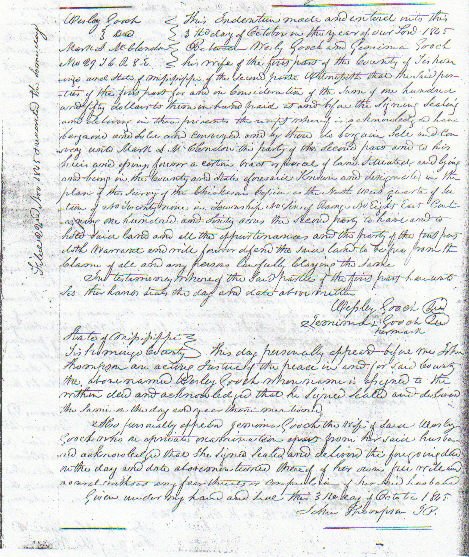 Wesley Gooch
& Deed
Mark S. McClendon
NW 29 J 6 R 8 E
This Indenture made and entered into this
3rd day of October in the year of our Lord 1845
Between Wesly Gooch and Jemima Gooch
his wife of the first part of the County of Tishom
ingo and State of Mississippi of the Second part Witnesseth that the said par
ties of the first part for and in Consideration of the Sum of one hundred
and fifty dollars to them in hand paid at and before the Signing Sealing
and delivery of these presents the receipt whereof is acknowledged, have
bargained and Sold and conveyed and by these do bargain Sell and Con
vey unto Mark S. McClendon the party of the second part and to his
heirs and assigns forever a certain tract or parcel of land Situated and lying
and being in the County and State aforesaid Known and designated in the
plan of the Survey of the Chickasaw Cession as the North West quarter of Sec
tion of No Twenty nine in Township No Six of Range No Eight East Cont
aining one hundred and Sixty acres the Second party to have and to
hold said land and all the appurtenances and the party of the first par
doth Warrant and will forever defend the said land to be free from the
Claims of all and any persons lawfully Claiming the Same
In testimony whereof the said parties of the first part hereunto
Set their hands seals the day and date above
Wesley Gooch Seal
Jemima Gooch Seal
her mark
State of Mississippi
Tishomingo County
This day personally appeared before me John
Thompson an acting Justice of the peace in and for said County
the above named Wesley Gooch whose name is assigned to the
within deed and acknowledged that he Signed Sealed and delivered
the Same on the day and year therein mentioned
Also personally appeared Jemima Gooch the Wife of said Wesley
Gooch who on a private examination apart from her said husban
and acknowledged that She Signed Sealed and delivered the foregoing deed
on the day and date above mentioned thereof of her own free will and
accord without any fear threats or Compulsion of her said husband
Given under my hand and Seal this 3rd day of October 1845
John Thompson J.P.